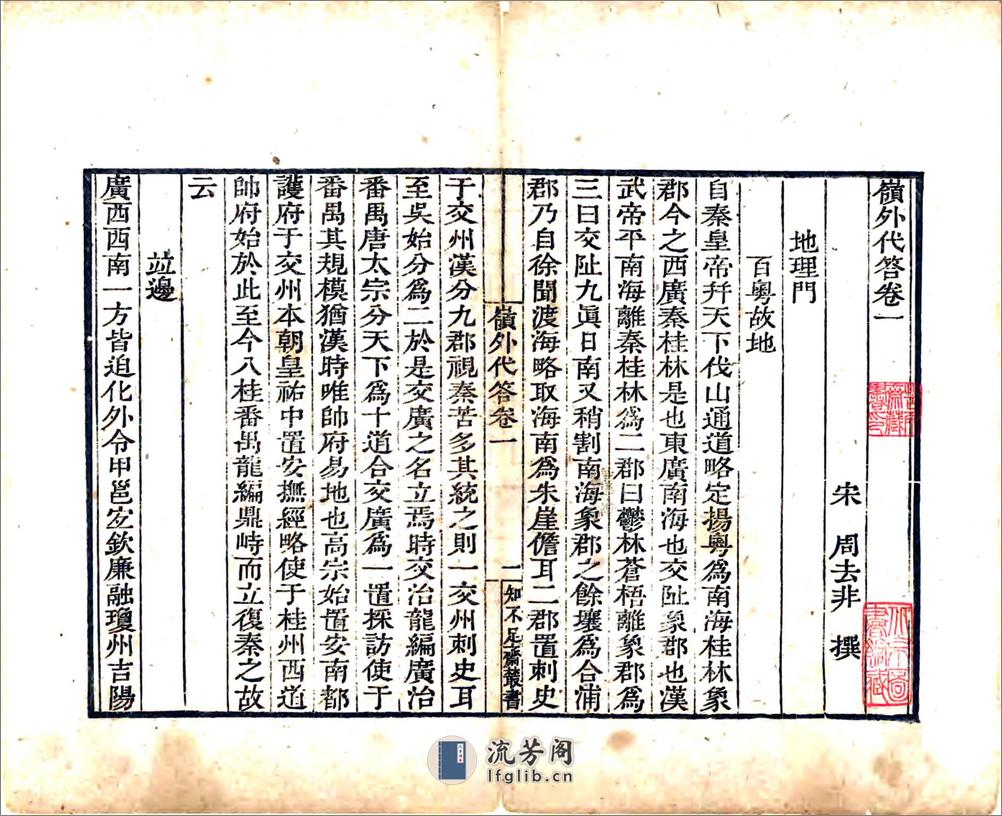 嶺外代答卷一
宋 周去非 撰
地理門
百粤故地
自秦皇帝幷天下伐山通道略定揚粤爲南海桂林象
郡今之西廣秦桂林是也東廣南海也交阯象郡也漢
武帝平南海離秦桂林爲二郡曰鬱林蒼梧離象郡爲
三曰交阯九眞日南又稍割南海象郡之餘壤爲合浦
郡乃自徐聞渡海略取海南爲朱崖儋耳二郡置刺史
嶺外代答卷一
一
知不足齋叢書
于交州漢分九郡視秦苦多其統之則一交州刺史耳
至吳始分爲二於是交廣之名立焉時交治龍編廣治
番禺唐太宗分天下爲十道合交廣爲一置採訪使于
番禺其規模猶漢時唯帥府易地也高宗始置安南都
護府于交州本朝皇祐中置安撫經略使于桂州西道
帥府始於此至今八桂番禺龍編鼎峙而立復秦之故
云
竝邊
廣西西南一方皆迫化外令甲邕宐欽廉融瓊州吉陽
流芳阁
lfglib.cn